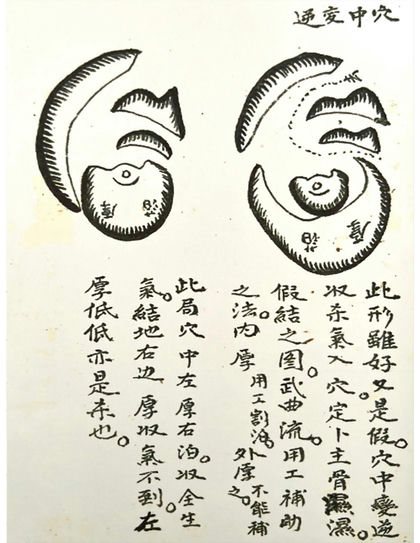 逆变中穴
厚 泊
厚 泊
此形雖好又是假。穴中變逆
収杀氣入穴定卜主骨濕濕。
假結之图武曲流。用工補助
之法内厚用工割泊。外厚不能補之。
此局穴中左厚右泊。収全生
氣。結地右边厚収氣不到。左
厚低低亦是杀也。